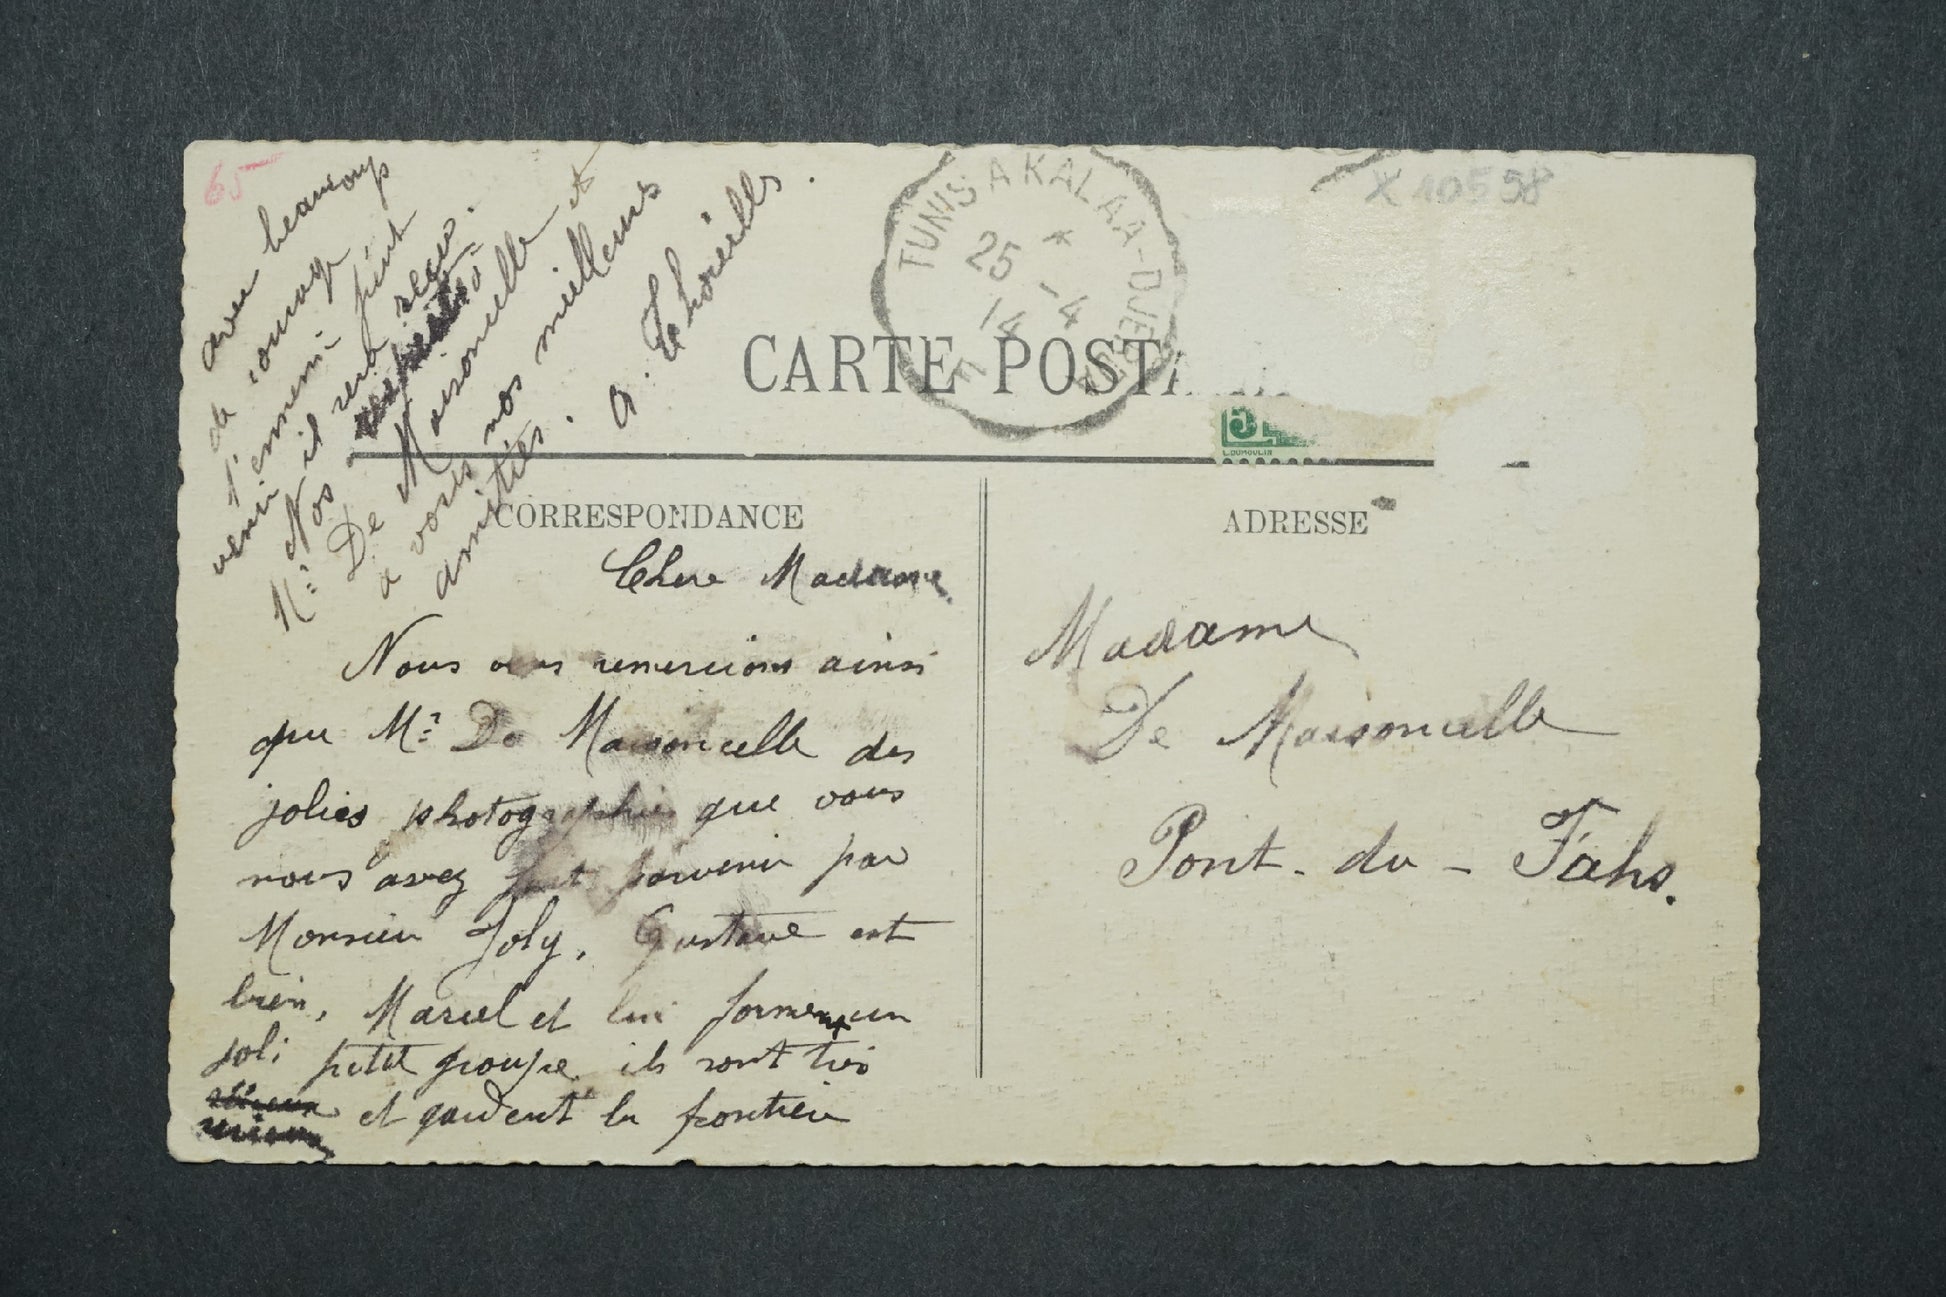 65
X 10558
TUNIS A KALAA-DJERDA
25 -4
14
CARTE POSTA
5
L.DUMOULIN
CORRESPONDANCE
ADRESSE
Chere Madame
Nous vous remercions ainsi
que Mr De Maisoncelle des
jolies photographies que vous
nous avez fait parvenir par
Monsieur Joly, Gustave est
bien, Marcel et lui forment un
joli petit groupe ils sont très
et gardent la frontière
avec beaucoup
de courage
l'ennemi peut
venir il sera reçu.
Nos
Mr De Maisoncelle et
a vous nos meilleurs
amitiés.
Madame
De Maisoncelle
Pont-du-Fahs.